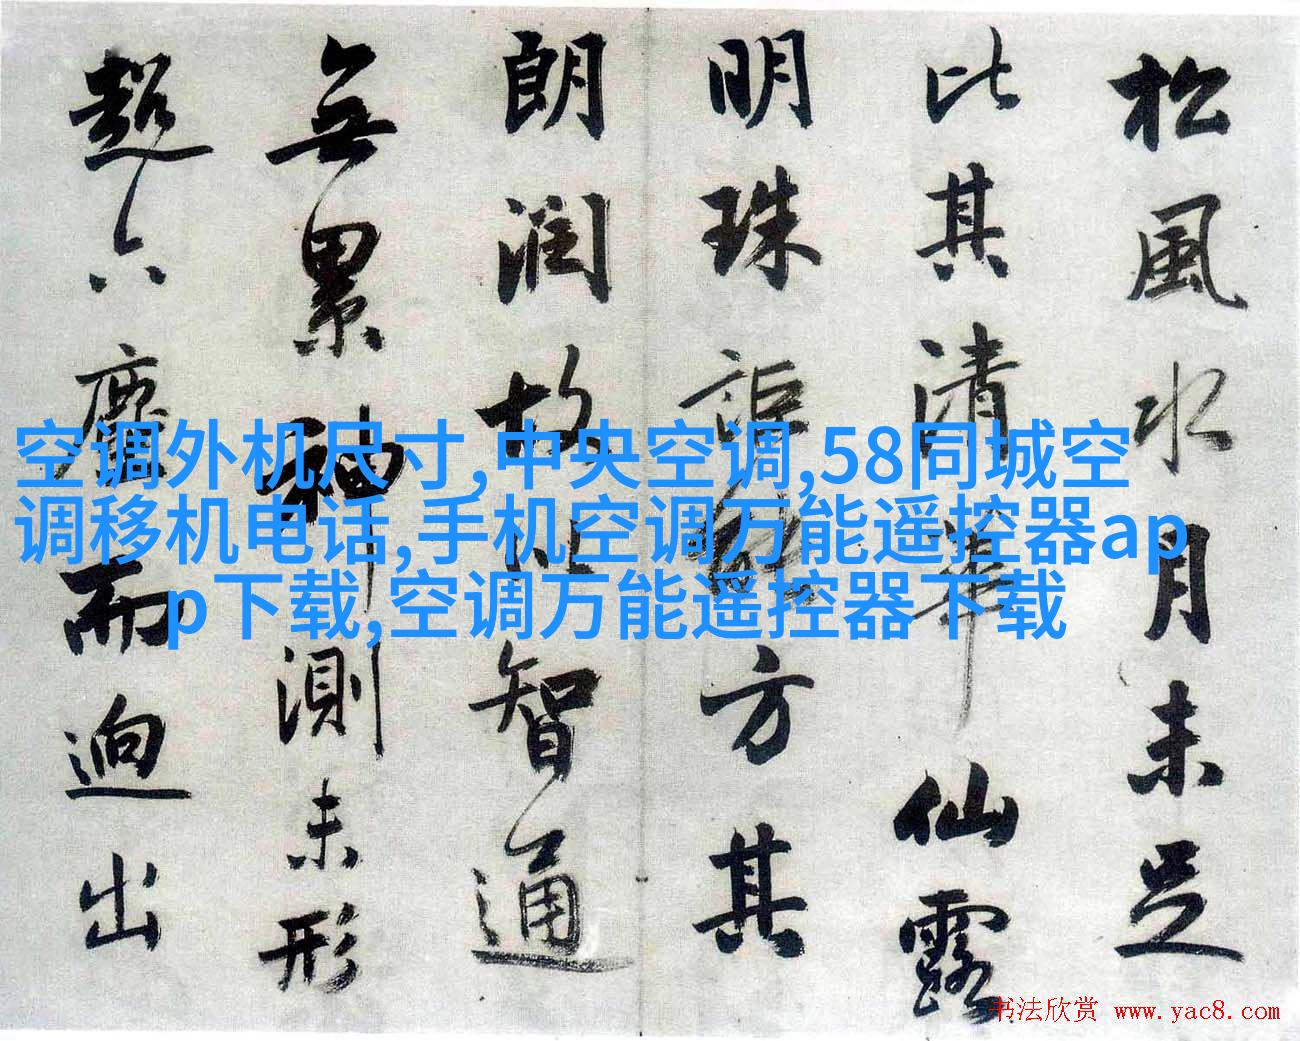 松風水月未足
比其清華仙露
明珠詎能方其
朗潤故以智通
無累神測未形
超六塵而迥出
空调外机尺寸,中央空调,58同城空
调移机电话,手机空调万能遥控器ap
p下载,空调万能遥控器下载
书法欣赏 www.yac8.com